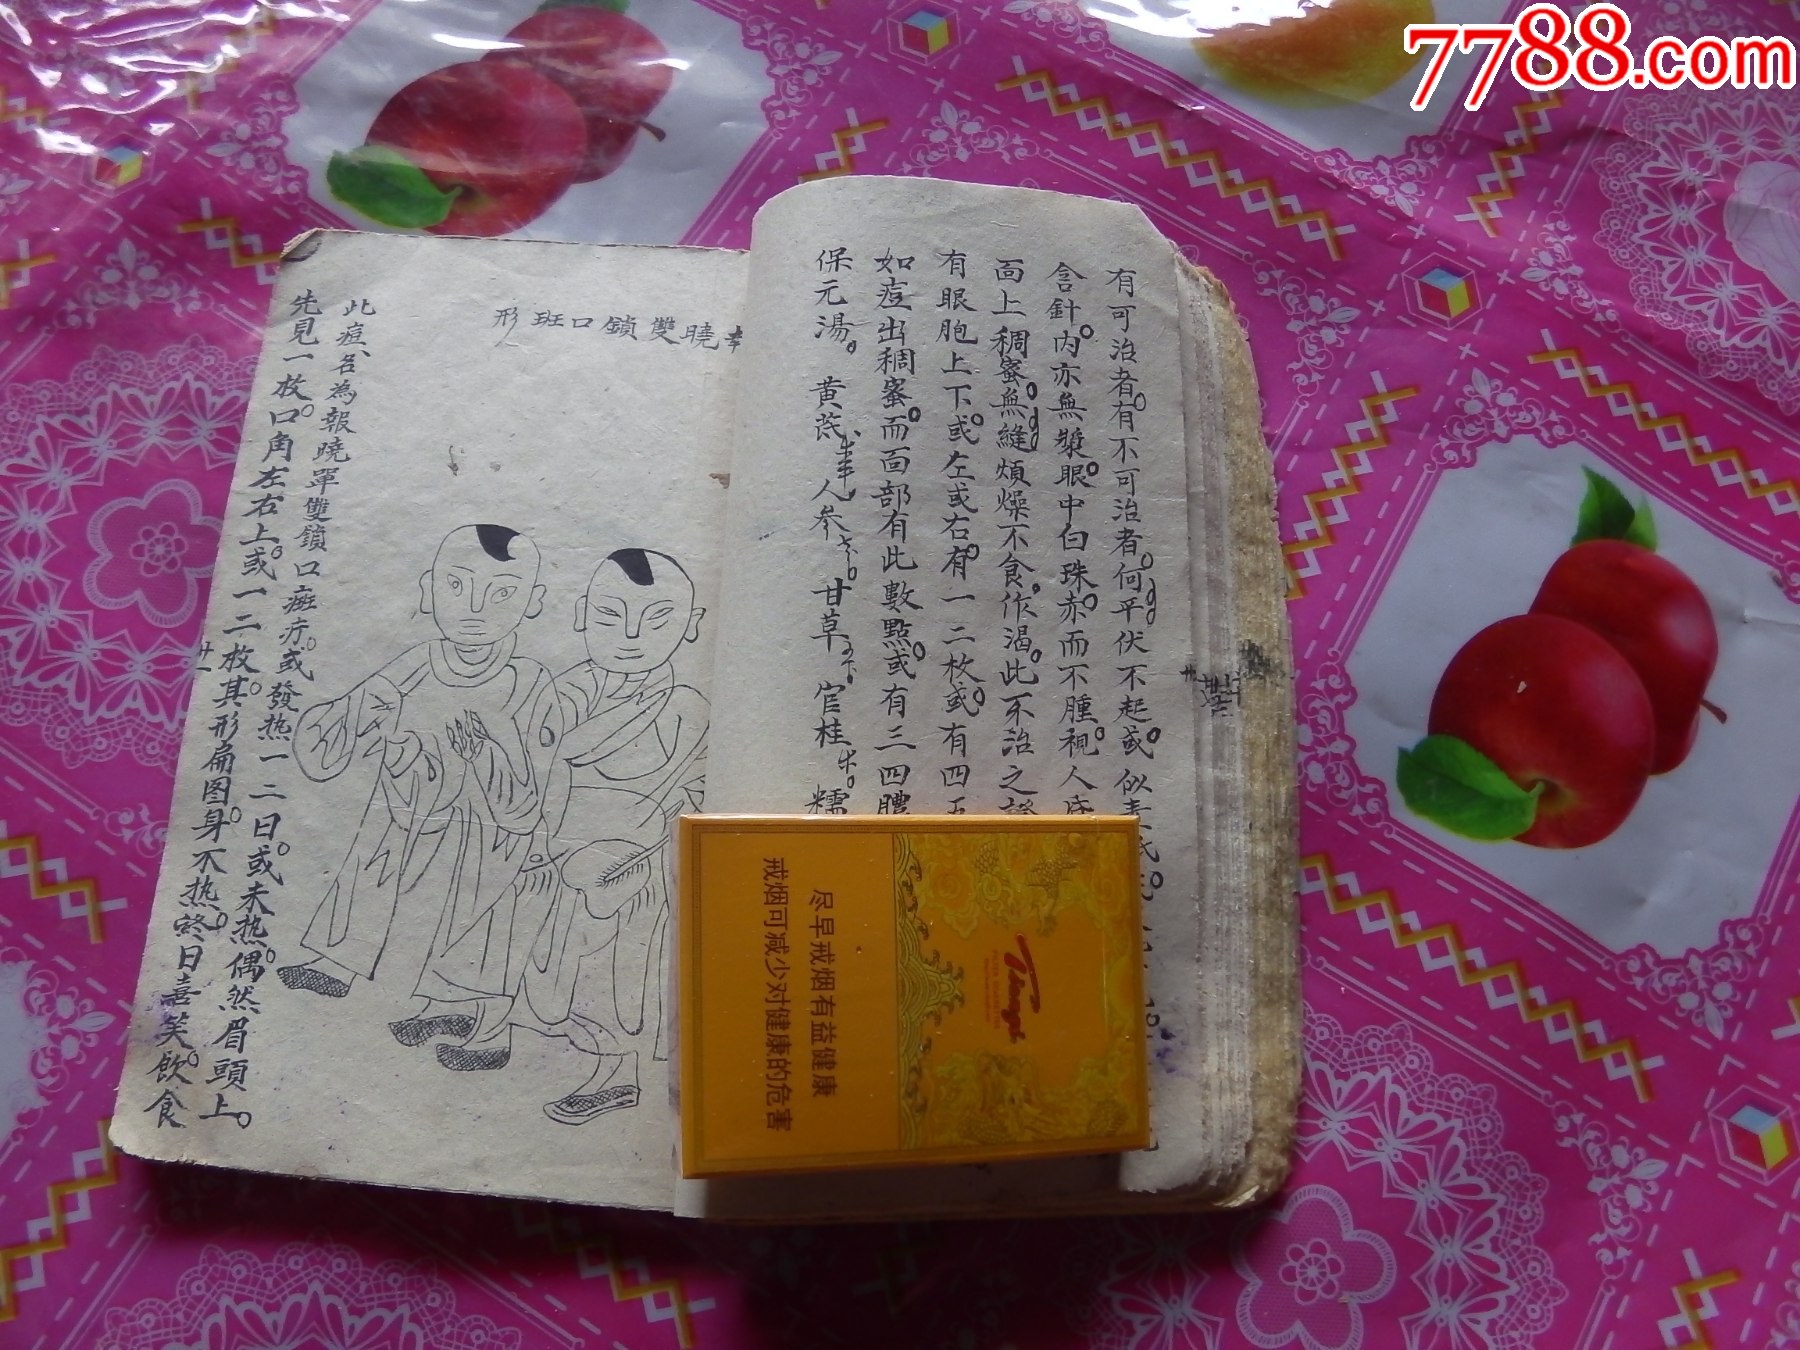 7788.com
有可治者。有不可治者。何平伏不起。或似
含針。内亦無漿。眼中白珠赤。而不腫。視人
面上稠蜜。無縫煩燥不食。作渴。此不治之
有眼胞上下。或左或右。有一二枚。或有四五
如痘出稠蜜。而面部有此數點。或有三四膿
保元湯。 黄芪 人參 甘草 官桂 糯
報曉雙鎖口班形
此痘、名為報曉單雙鎖口癍疔。或發热一二日。或未热。偶然眉頭上。
先見一枚。口角左右上。或一二枚。其形扁图。身不热。終日喜笑。飲食
廿一
尽早戒烟有益健康
戒烟可减少对健康的危害